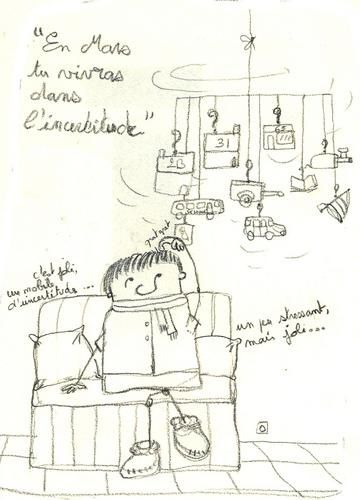 "En Mars
tu vivras
dans
l'incertitude"
31
grat grat
c'est joli,
un mobile
d'incertitude...
un peu stressant,
mais joli...